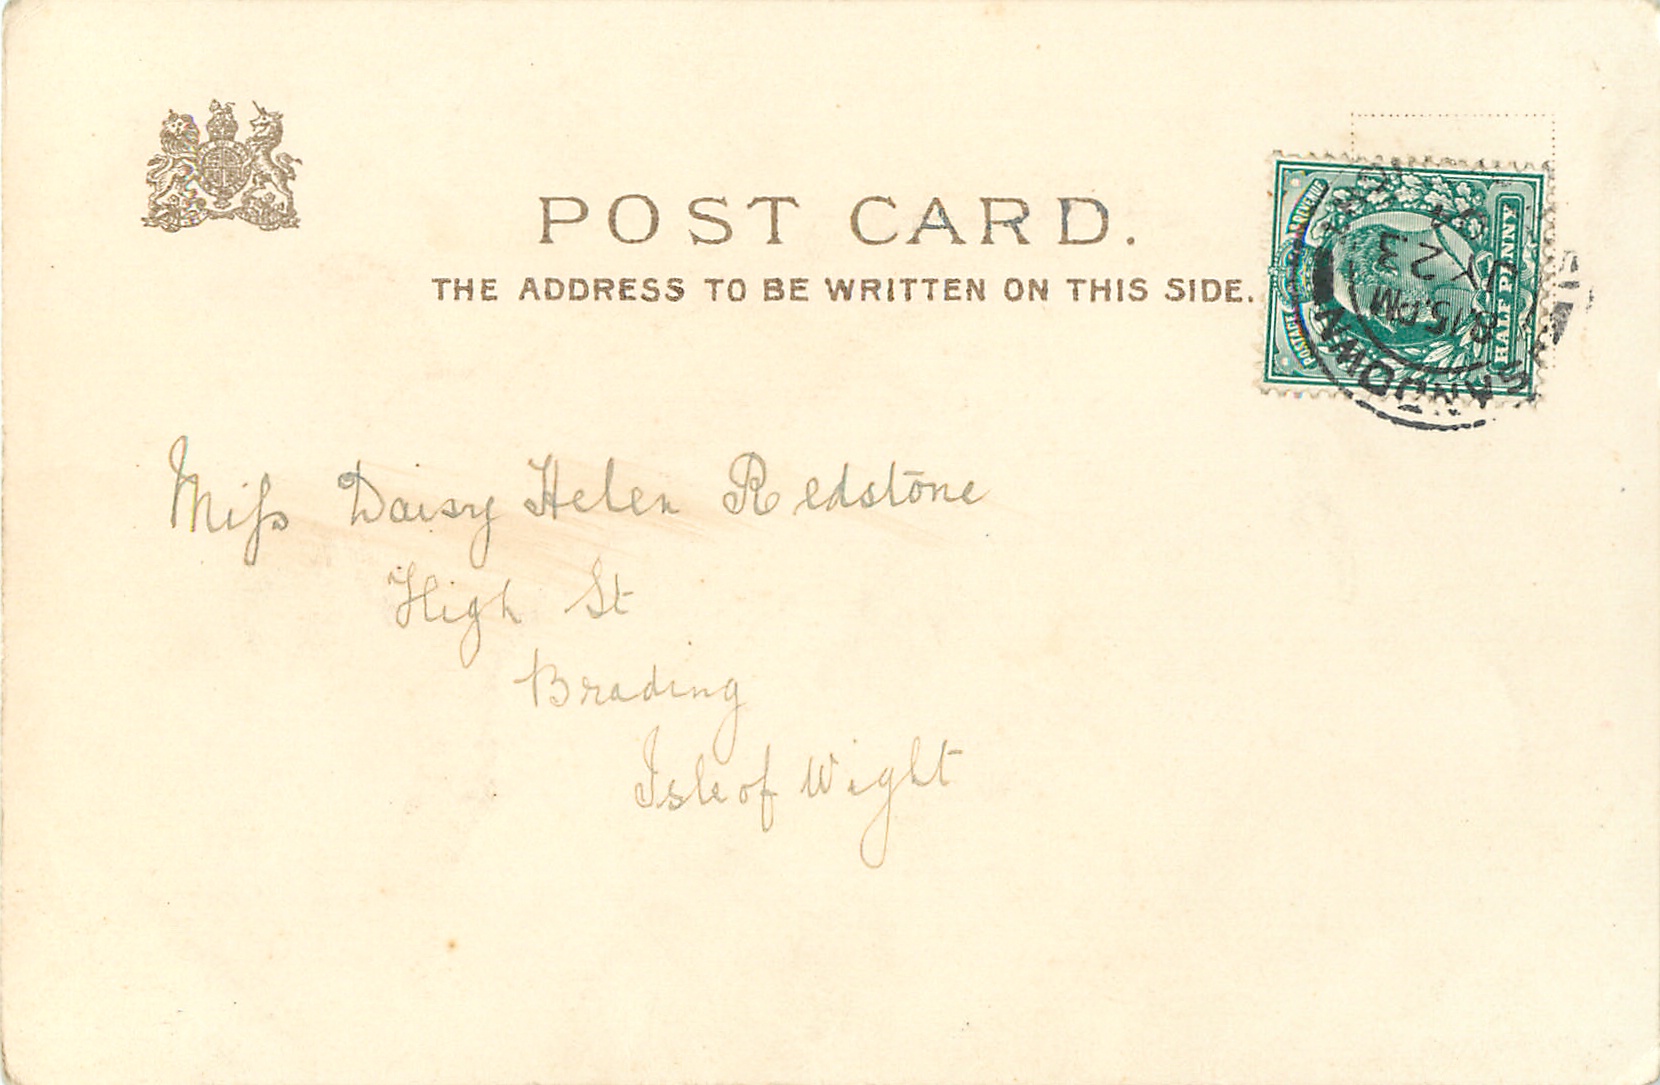 POST CARD.
THE ADDRESS TO BE WRITTEN ON THIS SIDE.
POSTAGE & REVENUE
HALF PENNY
SANDOWN
8.15 PM
JY 23
04
Miss Daisy Helen Redstone
High St
Brading
Isle of Wight